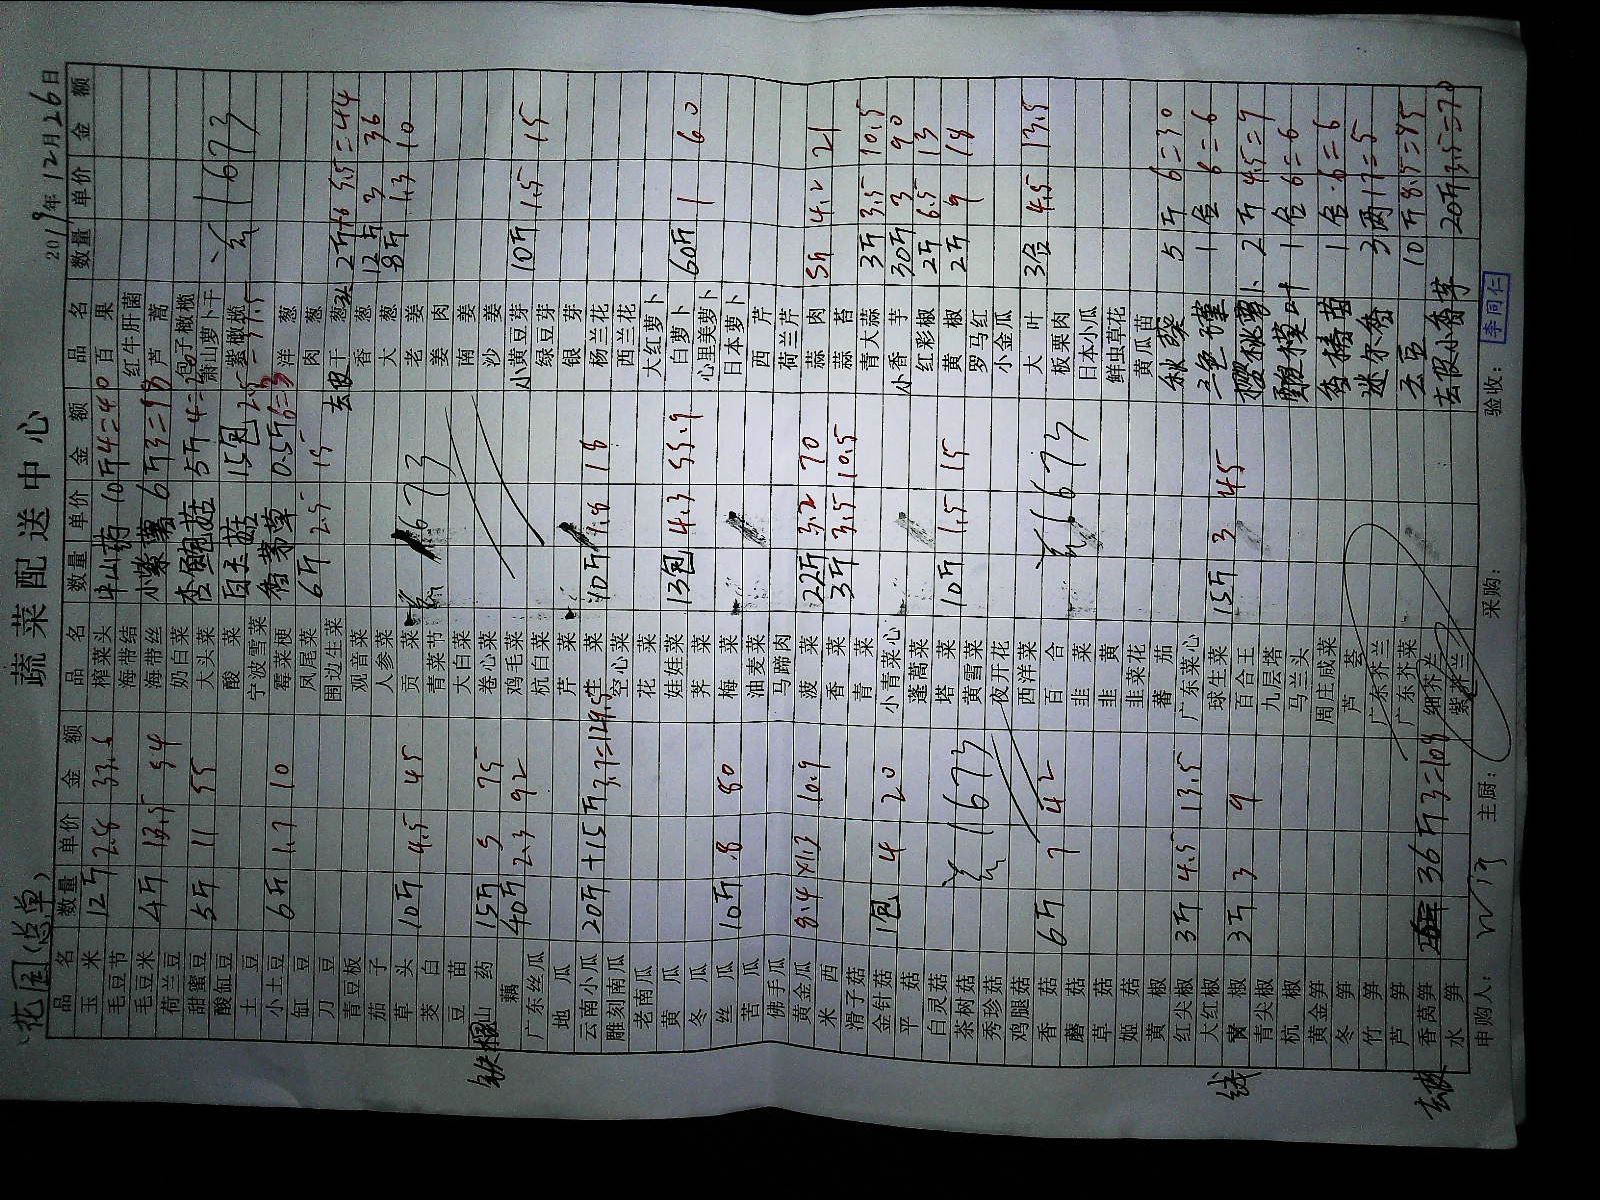 蔬菜配送中心
花园(总单) 2019年12月26日
品名 数量 单价 金额 品名 数量 单价 金额 品名 数量 单价 金额
玉米 12斤 2.8 33.6 榨菜头 牛山药 10斤4=40 百果
毛豆节 海带结 红牛肝菌
毛豆米 4斤 13.5 54 海带丝 小紫薯 6斤3=18 芦蒿
荷兰豆 奶白菜 杏鲍菇 5斤4= 包子橄榄
甜蜜豆 5斤 11 55 大头菜 萧山萝卜干
酸缸豆 酸菜 白玉菇 15包 紫橄榄 1673
土豆 宁波雪菜 洋葱
小土豆 6斤 1.7 10 霉菜梗 香茅草 0.5斤6=3 肉葱
缸豆 凤尾菜 6斤 2.5 15 去皮干葱头 2斤+6 5.5=44
刀豆 围边生菜 香葱 12斤 3 36
青豆板 观音菜 大葱 8斤 1.3 10
茄子 人参菜 老姜
草头 10斤 4.5 45 贡菜 1673 姜肉
茭白 青菜节 南姜
豆苗 大白菜 沙姜
铁棍山药 15斤 5 75 卷心菜 小黄豆芽 10斤 1.5 15
藕 40斤 2.3 92 鸡毛菜 绿豆芽
广东丝瓜 杭白菜 银芽
地瓜 芹菜 杨兰花
云南小瓜 20斤+15斤 3.7=129.5 生菜 10斤 1.8 18 西兰花
雕刻南瓜 空心菜 大红萝卜
老南瓜 花菜 白萝卜 60斤 1 60
黄瓜 娃娃菜 13包 4.3 55.9 心里美萝卜
冬瓜 荠菜 日本萝卜
丝瓜 10斤 8 80 梅菜 西芹
苦瓜 油麦菜 荷兰芹
佛手瓜 马蹄肉 蒜肉 5斤 4.2 21
黄金瓜 8.4 x1.3 10.9 菠菜 22斤 3.2 70 蒜苔
米西 香菜 3斤 3.5 10.5 青大蒜 3斤 3.5 10.5
滑子菇 青菜 小香芋 30斤 3 90
金针菇 1包 4 20 小青菜心 红彩椒 2斤 6.5 13
平菇 蓬蒿菜 黄椒 2斤 9 18
白灵菇 塔菜 10斤 1.5 15 罗马红
茶树菇 1673 黄雪菜 小金瓜
秀珍菇 夜开花 大叶 3合 4.5 13.5
鸡腿菇 西洋菜 板栗肉
香菇 6斤 7 42 百合 1673 日本小瓜
蘑菇 韭菜 鲜虫草花
草菇 韭黄 黄瓜苗
姬菇 韭菜花 秋葵 5斤 6=30
黄椒 蕃茄 三色堇 1合 6=6
红尖椒 3斤 4.5 13.5 广东菜心 樱桃萝卜 2斤 4.5=9
大红椒 球生菜 15斤 3 45 1合 6=6
窝椒 3斤 3 9 百合王 1合 6=6
青尖椒 九层塔 迷尔香 3两 17=5
杭椒 马兰头 去豆 10斤 8.5=85
黄金笋 周庄咸菜 去皮小香芋 20斤 3.5=70
冬笋 芦荟
竹笋 广东芥兰
芦笋 广东芥菜
去皮香莴笋 36斤3=108 细芥兰
水笋 紫芥兰
申购人: 主厨: 采购: 验收: 李同仁